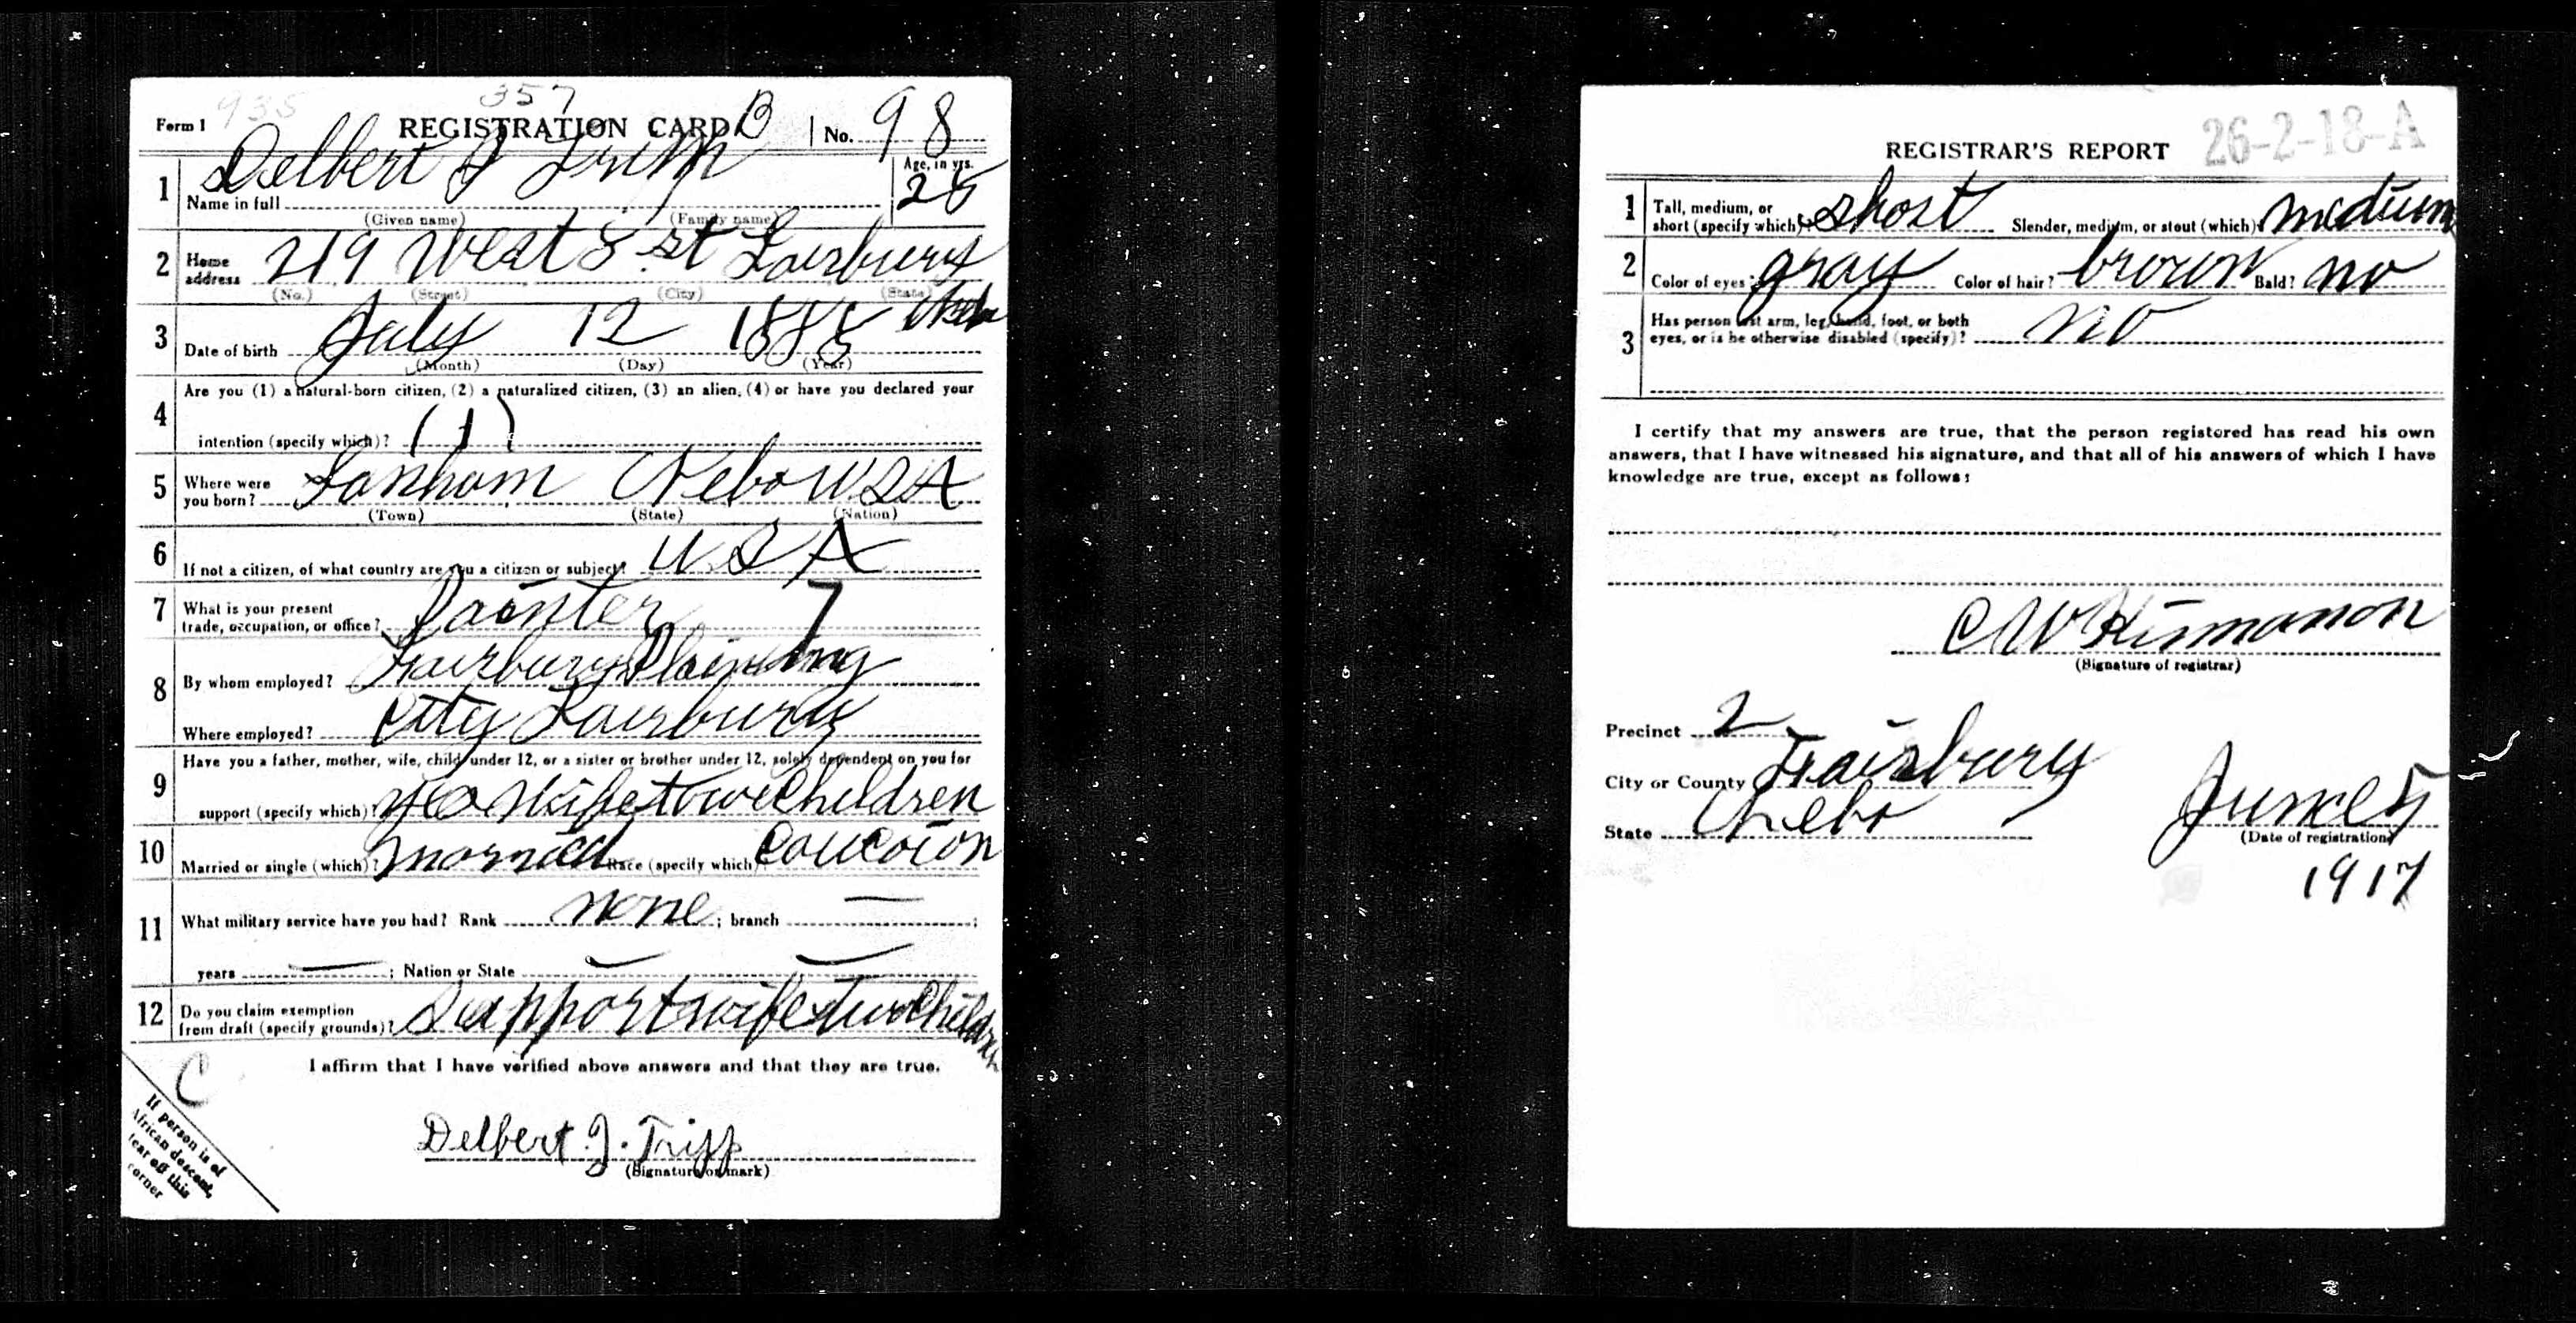 935
357
Form 1 REGISTRATION CARD B No. 98
1 Name in full Delbert J Tripp Age, in yrs. 28
(Given name) (Family name)
2 Home address 219 West 8 st Fairbury Neb
(No.) (Street) (City) (State)
3 Date of birth July 12 1888
(Month) (Day) (Year)
4 Are you (1) a natural-born citizen, (2) a naturalized citizen, (3) an alien, (4) or have you declared your
intention (specify which)? (1)
5 Where were you born? Lanham Nebo USA
(Town) (State) (Nation)
6 If not a citizen, of what country are you a citizen or subject? USA
7 What is your present trade, occupation, or office? Painter 7
8 By whom employed? Fairbury
Where employed? City Fairbury
9 Have you a father, mother, wife, child under 12, or a sister or brother under 12, solely dependent on you for
support (specify which)? yes Wife towe Children
10 Married or single (which)? married Race (specify which)? Caucaion
11 What military service have you had? Rank none ; branch — ;
years — ; Nation or State —
12 Do you claim exemption from draft (specify grounds)? Support wife & two Children
I affirm that I have verified above answers and that they are true.
C
Delbert J. Tripp
(Signature or mark)
If person is of
African descent,
tear off this
corner
REGISTRAR'S REPORT 26-2-18-A
1 Tall, medium, or short (specify which)? short Slender, medium, or stout (which)? medium
2 Color of eyes? gray Color of hair? brown Bald? no
3 Has person lost arm, leg, hand, foot, or both
eyes, or is he otherwise disabled (specify)? no
I certify that my answers are true, that the person registered has read his own
answers, that I have witnessed his signature, and that all of his answers of which I have
knowledge are true, except as follows:
C W Kinnamon
(Signature of registrar)
Precinct 2
City or County Fairbury
State Nebo
June 5
(Date of registration)
1917